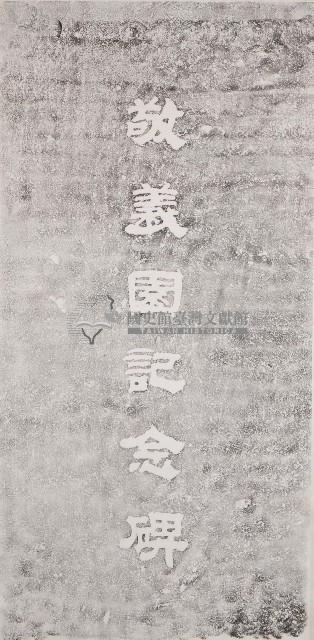 敬義園記念碑
國史館臺灣文獻館
TAIWAN HISTORICA